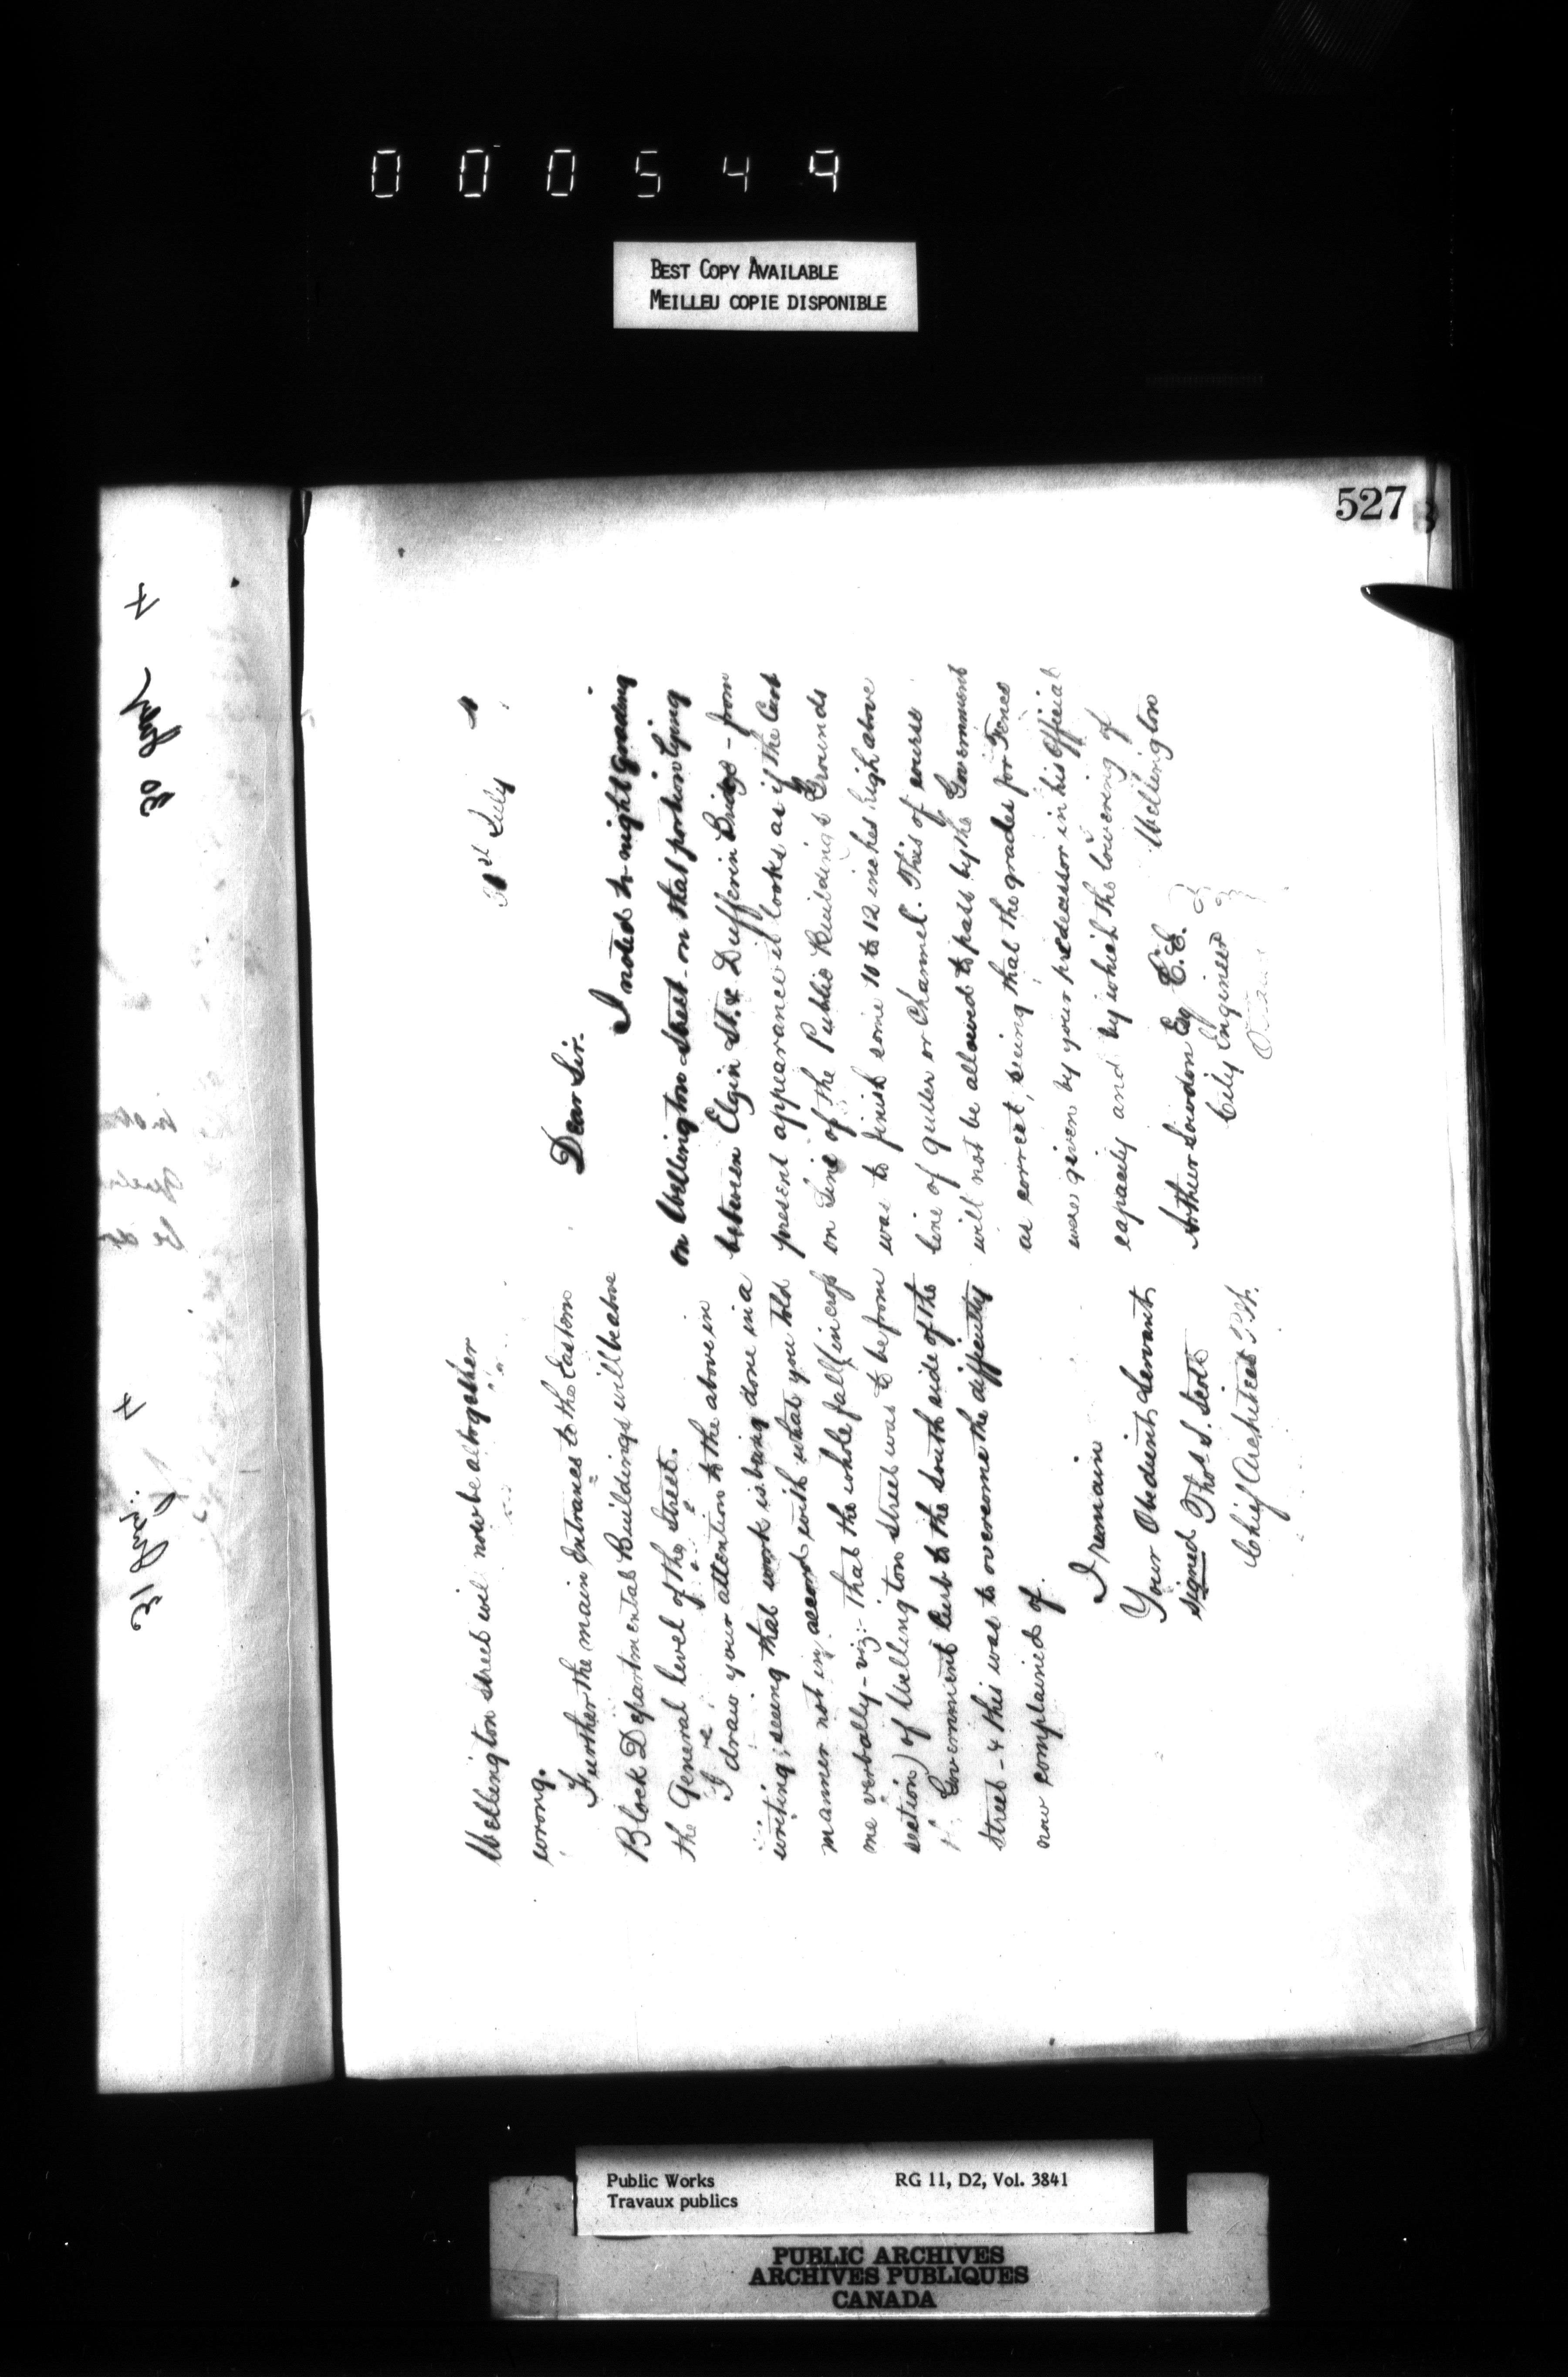 000549
BEST COPY AVAILABLE
MEILLEU COPIE DISPONIBLE
527
30 July 4
31 July 4
31st July 4
Dear Sir.
I noted to-night grading
on Wellington Street - on that portion lying
between Elgin St. & Dufferin Bridge - from
present appearance it looks as if the Curb
on Line of the Public Buildings Grounds
was to finish some 10 to 12 inches high above
line of gutter or Channel. This of course
will not be allowed to pass by the Government
as correct, seeing that the grades for Fence
were given by your predecessor in his Official
capacity and by which the lowering of
Wellington
Arthur Sowdon Esq C.E.
City Engineer
Ottawa
Wellington Street will now be altogether
wrong.
Further the main Entrances to the Eastern
Block Departmental Buildings will be above
the General level of the Street.
I draw your attention to the above in
writing, seeing that work is being done in a
manner not in accord with what you told
me verbally - viz:- that the whole fall (in cross
section) of Wellington Street was to be from
Government Curb to the South side of the
Street - & this was to overcome the difficulty
now complained of.
I remain
Your Obedient Servant
signed Thos. S. Scott
Chief Architect P.W.
Public Works
Travaux publics
RG 11, D2, Vol. 3841
PUBLIC ARCHIVES
ARCHIVES PUBLIQUES
CANADA